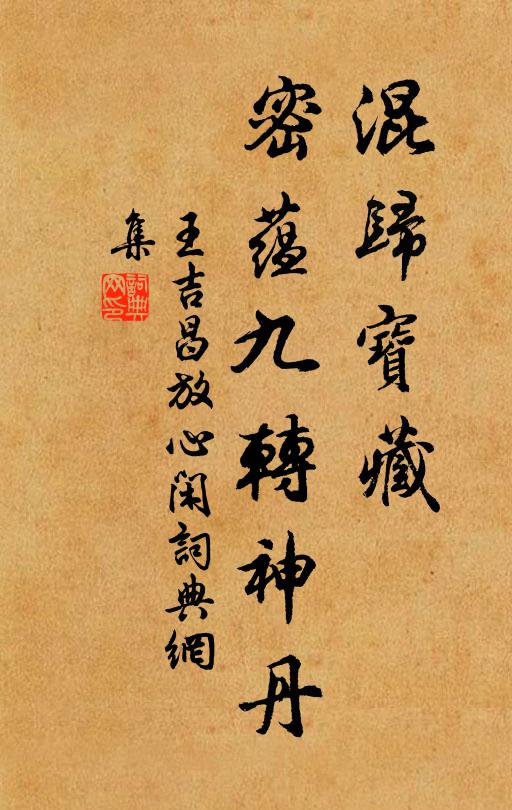 混歸寶藏
密蘊九轉神丹
王吉昌放心閑詞典網
集
詞典
网印